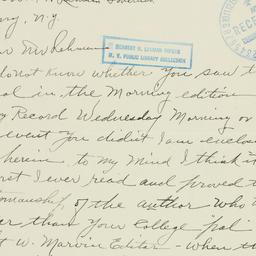 ny, N.Y.
Mr Lehman
HERBERT H. LEHMAN PAPERS
N. Y. PUBLIC LIBRARY COLLECTION
do not know whether you saw t
in the Morning edition
Record Wednesday Morning or
event you didn't I am enclos
herein to my mind I think it
rst I ever read and proved t
manship, of the author who w
er than your College "pal
t W. Marvin Editor - When th